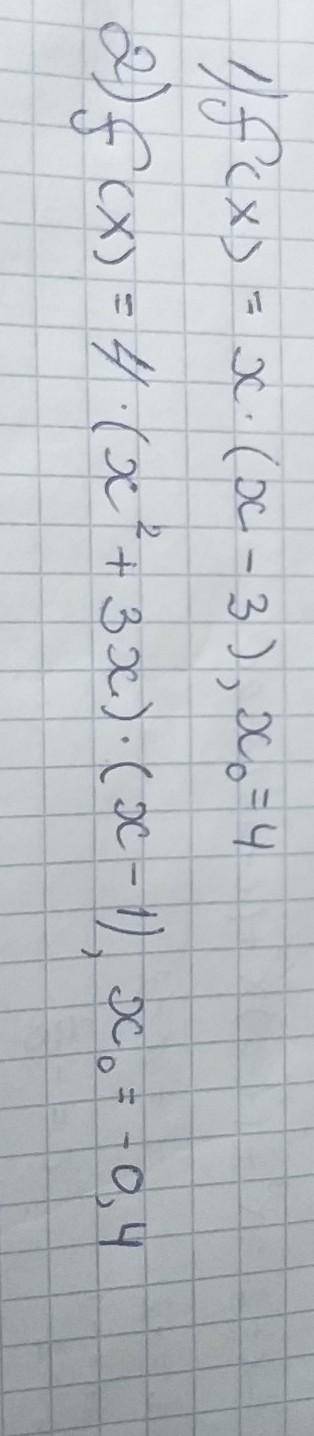 1) f(x) = x · (x - 3), x₀ = 4
2) f(x) = 4 · (x² + 3x) · (x - 1), x₀ = -0,4